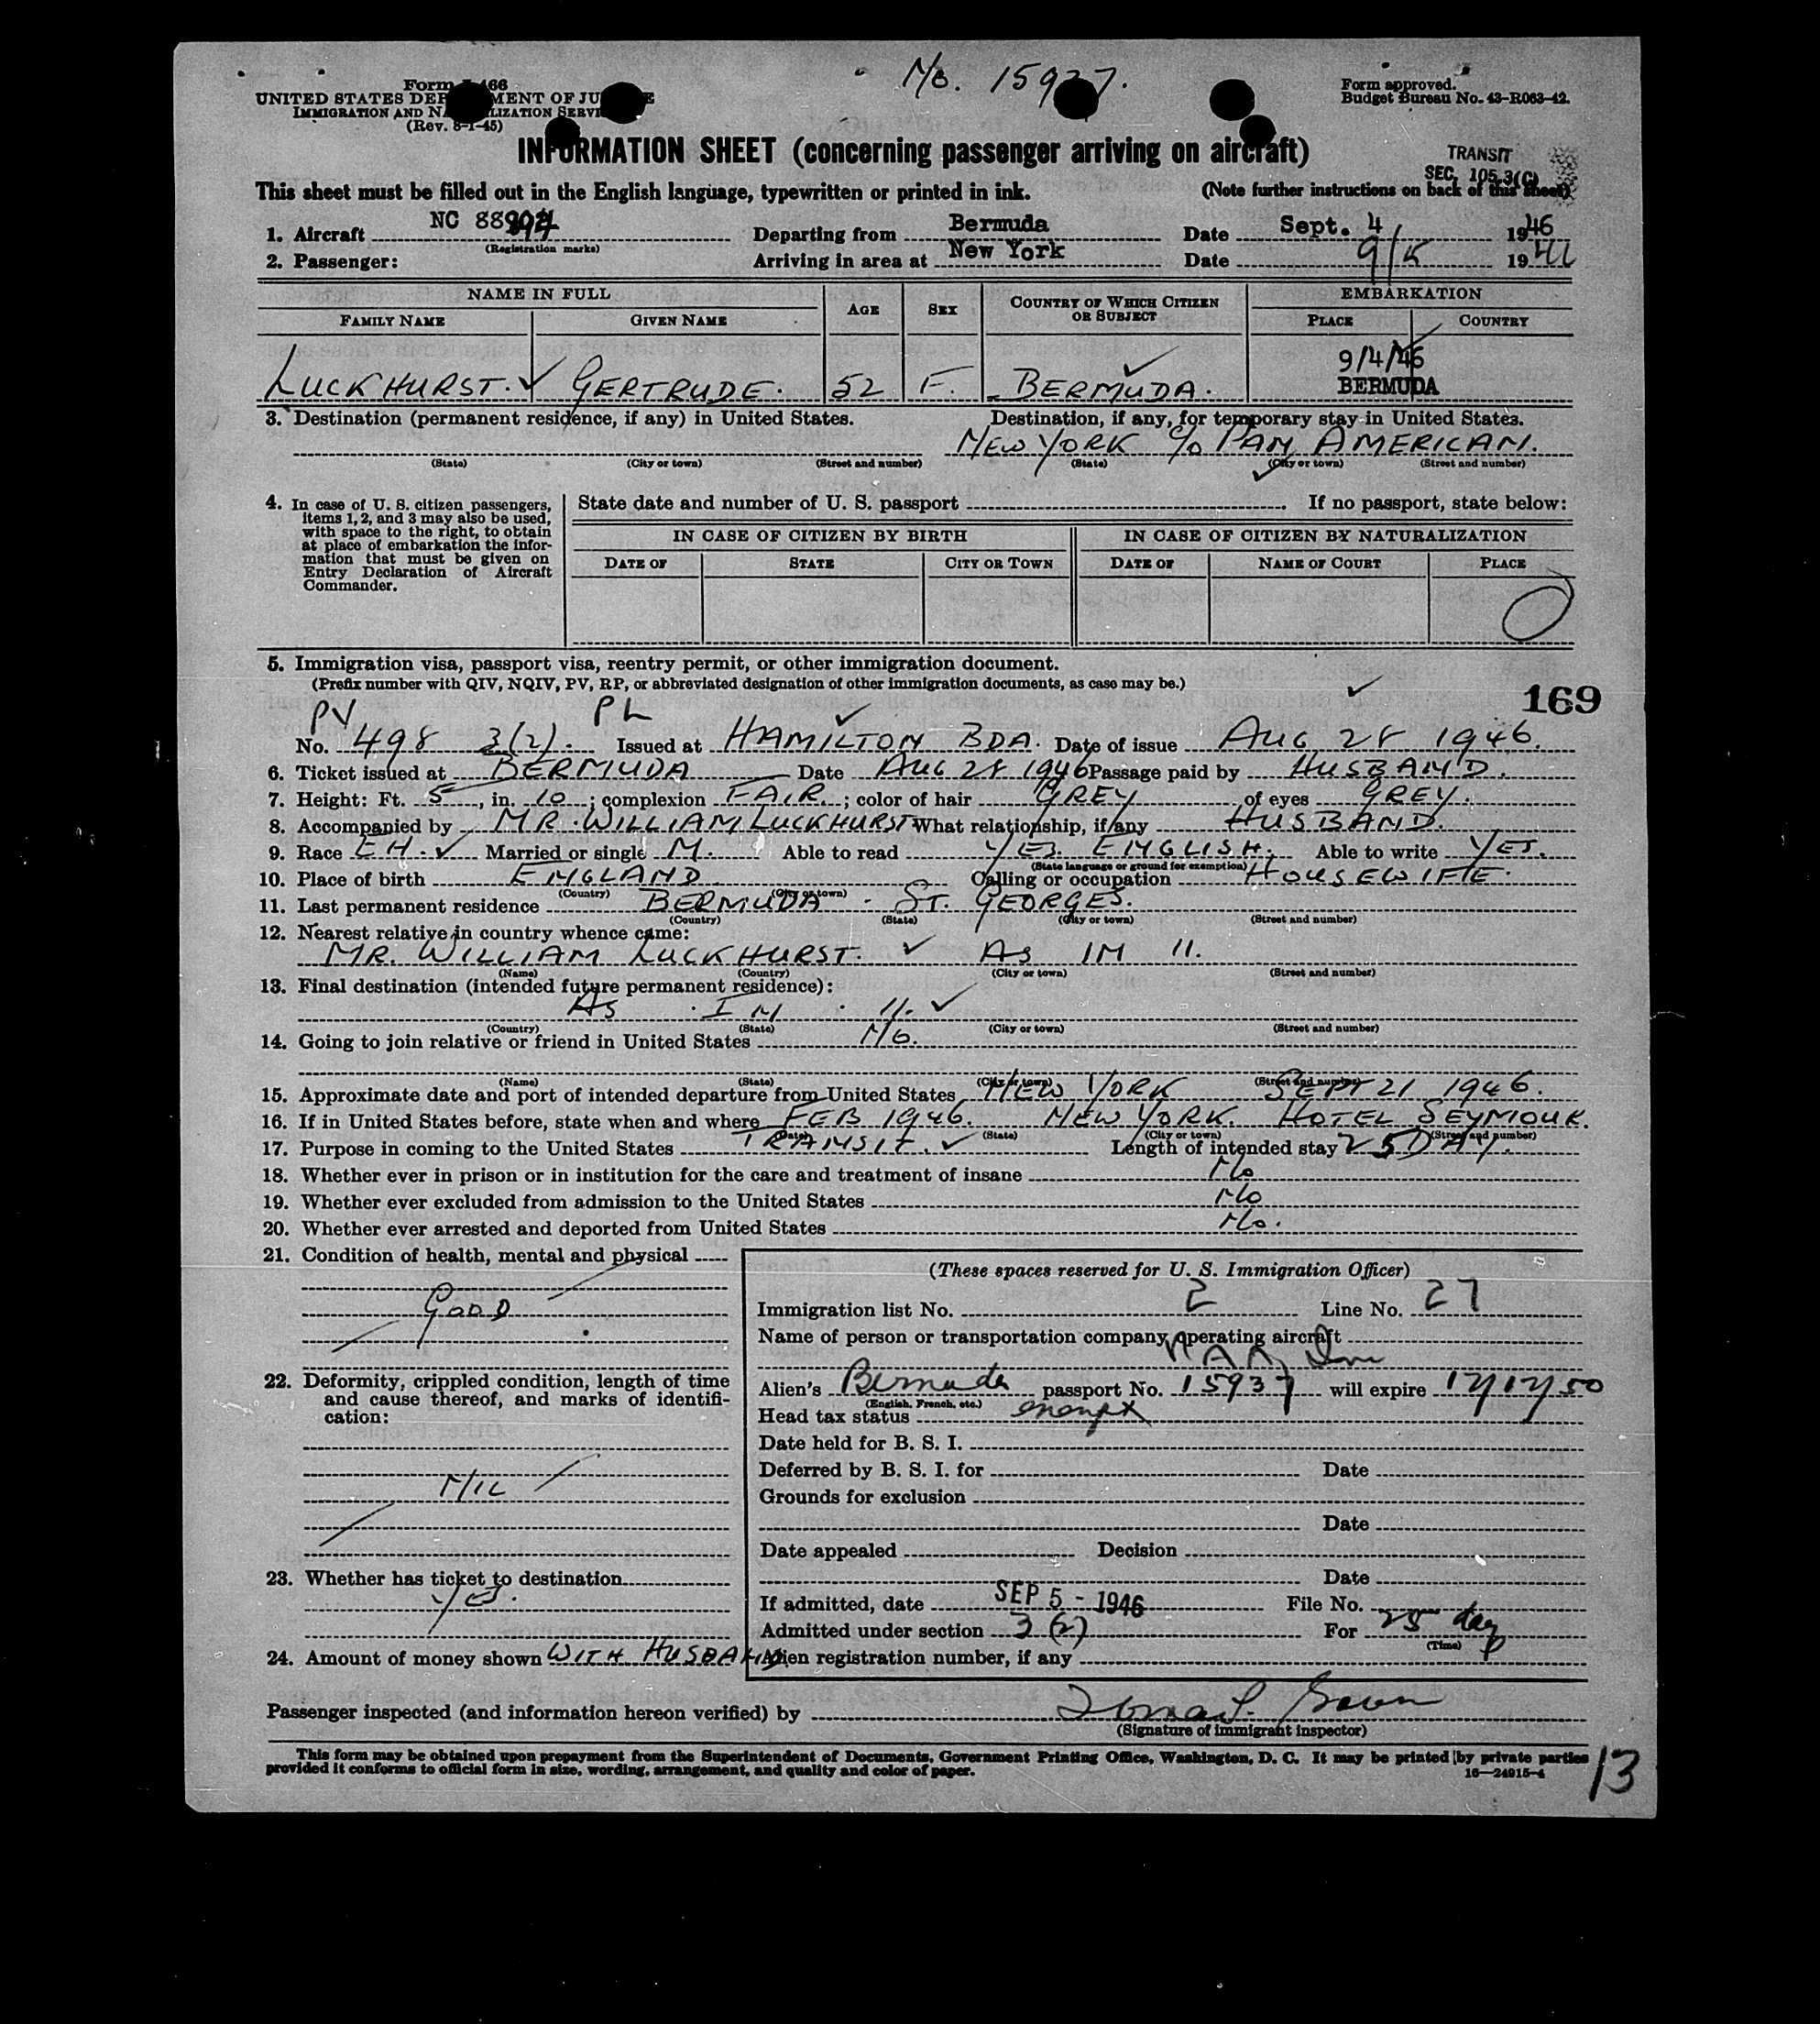 No. 15937.
Form I-466
UNITED STATES DEPARTMENT OF JUSTICE
IMMIGRATION AND NATURALIZATION SERVICE
(Rev. 8-1-45)
Form approved.
Budget Bureau No. 43-R063-42.
INFORMATION SHEET (concerning passenger arriving on aircraft)
TRANSIT
SEC. 105.3(C)
This sheet must be filled out in the English language, typewritten or printed in ink. (Note further instructions on back of this sheet)
1. Aircraft NC 88 Departing from Bermuda Date Sept. 4 1946
(Registration marks)
2. Passenger: Arriving in area at New York Date 9/5 1946
NAME IN FULL AGE SEX COUNTRY OF WHICH CITIZEN OR SUBJECT EMBARKATION
FAMILY NAME GIVEN NAME PLACE COUNTRY
LUCKHURST. GERTRUDE. 52 F. BERMUDA. 9/4/46 BERMUDA
3. Destination (permanent residence, if any) in United States. Destination, if any, for temporary stay in United States.
NEW YORK c/o PAN AMERICAN.
(State) (City or town) (Street and number) (State) (City or town) (Street and number)
4. In case of U. S. citizen passengers, items 1, 2, and 3 may also be used, with space to the right, to obtain at place of embarkation the information that must be given on Entry Declaration of Aircraft Commander.
State date and number of U. S. passport If no passport, state below:
IN CASE OF CITIZEN BY BIRTH IN CASE OF CITIZEN BY NATURALIZATION
DATE OF STATE CITY OR TOWN DATE OF NAME OF COURT PLACE
5. Immigration visa, passport visa, reentry permit, or other immigration document.
(Prefix number with QIV, NQIV, PV, RP, or abbreviated designation of other immigration documents, as case may be.)
169
PV PL
No. 498 3(2). Issued at HAMILTON BDA. Date of issue AUG 28 1946.
6. Ticket issued at BERMUDA Date AUG 28 1946 Passage paid by HUSBAND.
7. Height: Ft. 5, in. 10; complexion FAIR.; color of hair GREY of eyes GREY.
8. Accompanied by MR. WILLIAM LUCKHURST What relationship, if any HUSBAND.
9. Race EH. Married or single M. Able to read YES. ENGLISH. Able to write YES.
(State language or ground for exemption)
10. Place of birth ENGLAND Calling or occupation HOUSEWIFE.
(Country) (City or town)
11. Last permanent residence BERMUDA. ST. GEORGES.
(Country) (State) (City or town) (Street and number)
12. Nearest relative in country whence came:
MR. WILLIAM LUCKHURST. AS IN 11.
(Name) (Country) (City or town) (Street and number)
13. Final destination (intended future permanent residence):
AS. IN. 11.
(Country) (State) (City or town) (Street and number)
14. Going to join relative or friend in United States NO.
(Name) (State) (City or town) (Street and number)
15. Approximate date and port of intended departure from United States NEW YORK SEPT 21 1946.
16. If in United States before, state when and where FEB 1946. NEW YORK. HOTEL SEYMOUR.
(Date) (State) (City or town) (Street and number)
17. Purpose in coming to the United States TRANSIT. Length of intended stay 25 DAY.
18. Whether ever in prison or in institution for the care and treatment of insane No
19. Whether ever excluded from admission to the United States No
20. Whether ever arrested and deported from United States No.
21. Condition of health, mental and physical
GOOD
22. Deformity, crippled condition, length of time and cause thereof, and marks of identification:
NIL
23. Whether has ticket to destination
YES.
24. Amount of money shown WITH HUSBAND
(These spaces reserved for U. S. Immigration Officer)
Immigration list No. 2 Line No. 27
Name of person or transportation company operating aircraft
Alien's Bermuda passport No. 15937 will expire 12/12/50
(English, French, etc.)
Head tax status exempt
Date held for B. S. I.
Deferred by B. S. I. for Date
Grounds for exclusion
Date
Date appealed Decision
Date
If admitted, date SEP 5 - 1946 File No.
Admitted under section 3(2) For 25 day
(Time)
Alien registration number, if any
Passenger inspected (and information hereon verified) by
(Signature of immigrant inspector)
This form may be obtained upon prepayment from the Superintendent of Documents, Government Printing Office, Washington, D. C. It may be printed by private parties
provided it conforms to official form in size, wording, arrangement, and quality and color of paper.
16—24915-4
13